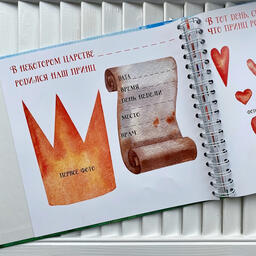 В НЕКОТОРОМ ЦАРСТВЕ
РОДИЛСЯ НАШ ПРИНЦ
ДАТА
ВРЕМЯ
ДЕНЬ НЕДЕЛИ
МЕСТО
ХРАМ
ПЕРВОЕ ФОТО
В ТОТ ДЕНЬ
ЧТО ПРИНЦ